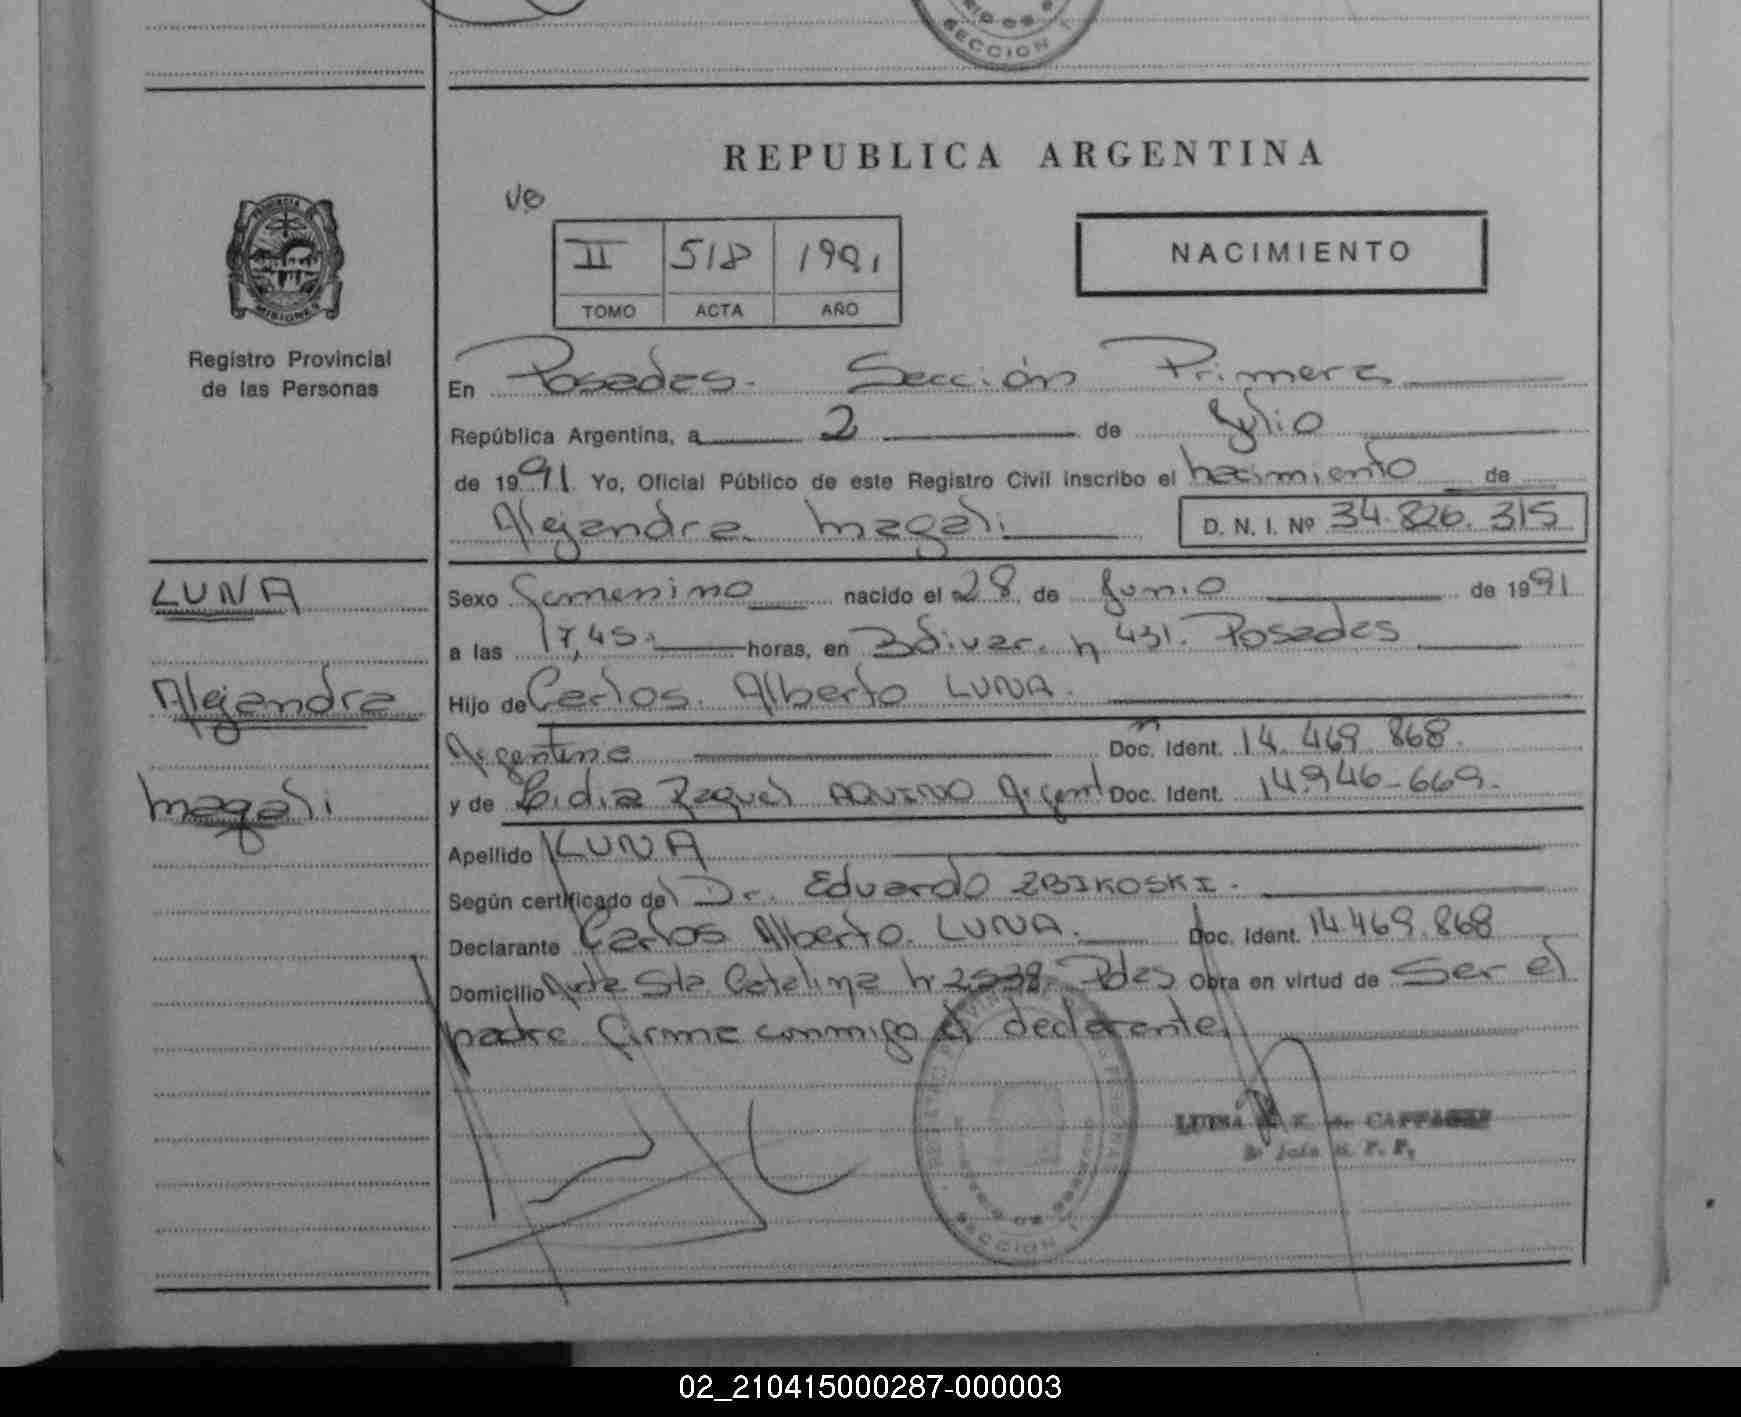 SECCION 1
REPUBLICA ARGENTINA
PROVINCIA DE
MISIONES
Registro Provincial
de las Personas
Vo
II 518 1991
TOMO ACTA AÑO
NACIMIENTO
En Posadas. Sección Primera
República Argentina, a 2 de Julio
de 1991 Yo, Oficial Público de este Registro Civil inscribo el nacimiento de
Alejandra Magali D. N. I. Nº 34.826.315
LUNA
Alejandra
Magali
Sexo Femenino nacido el 28 de Junio de 1991
a las 17,45. horas, en Bolivar. n 431. Posadas
Hijo de Carlos. Alberto LUNA.
Argentino Doc. Ident. 14.469.868.
y de Lidia Raquel AQUINO Argent Doc. Ident. 14.946-669.
Apellido LUNA
Según certificado del Dr. Eduardo ZBIKOSKI.
Declarante Carlos Alberto. LUNA. Doc. Ident. 14.469.868
Domicilio Avda Sta. Catalina n Pdas Obra en virtud de Ser el
padre firma conmigo el declarante.
LUISA K. de
SECCION 1
02_210415000287-000003